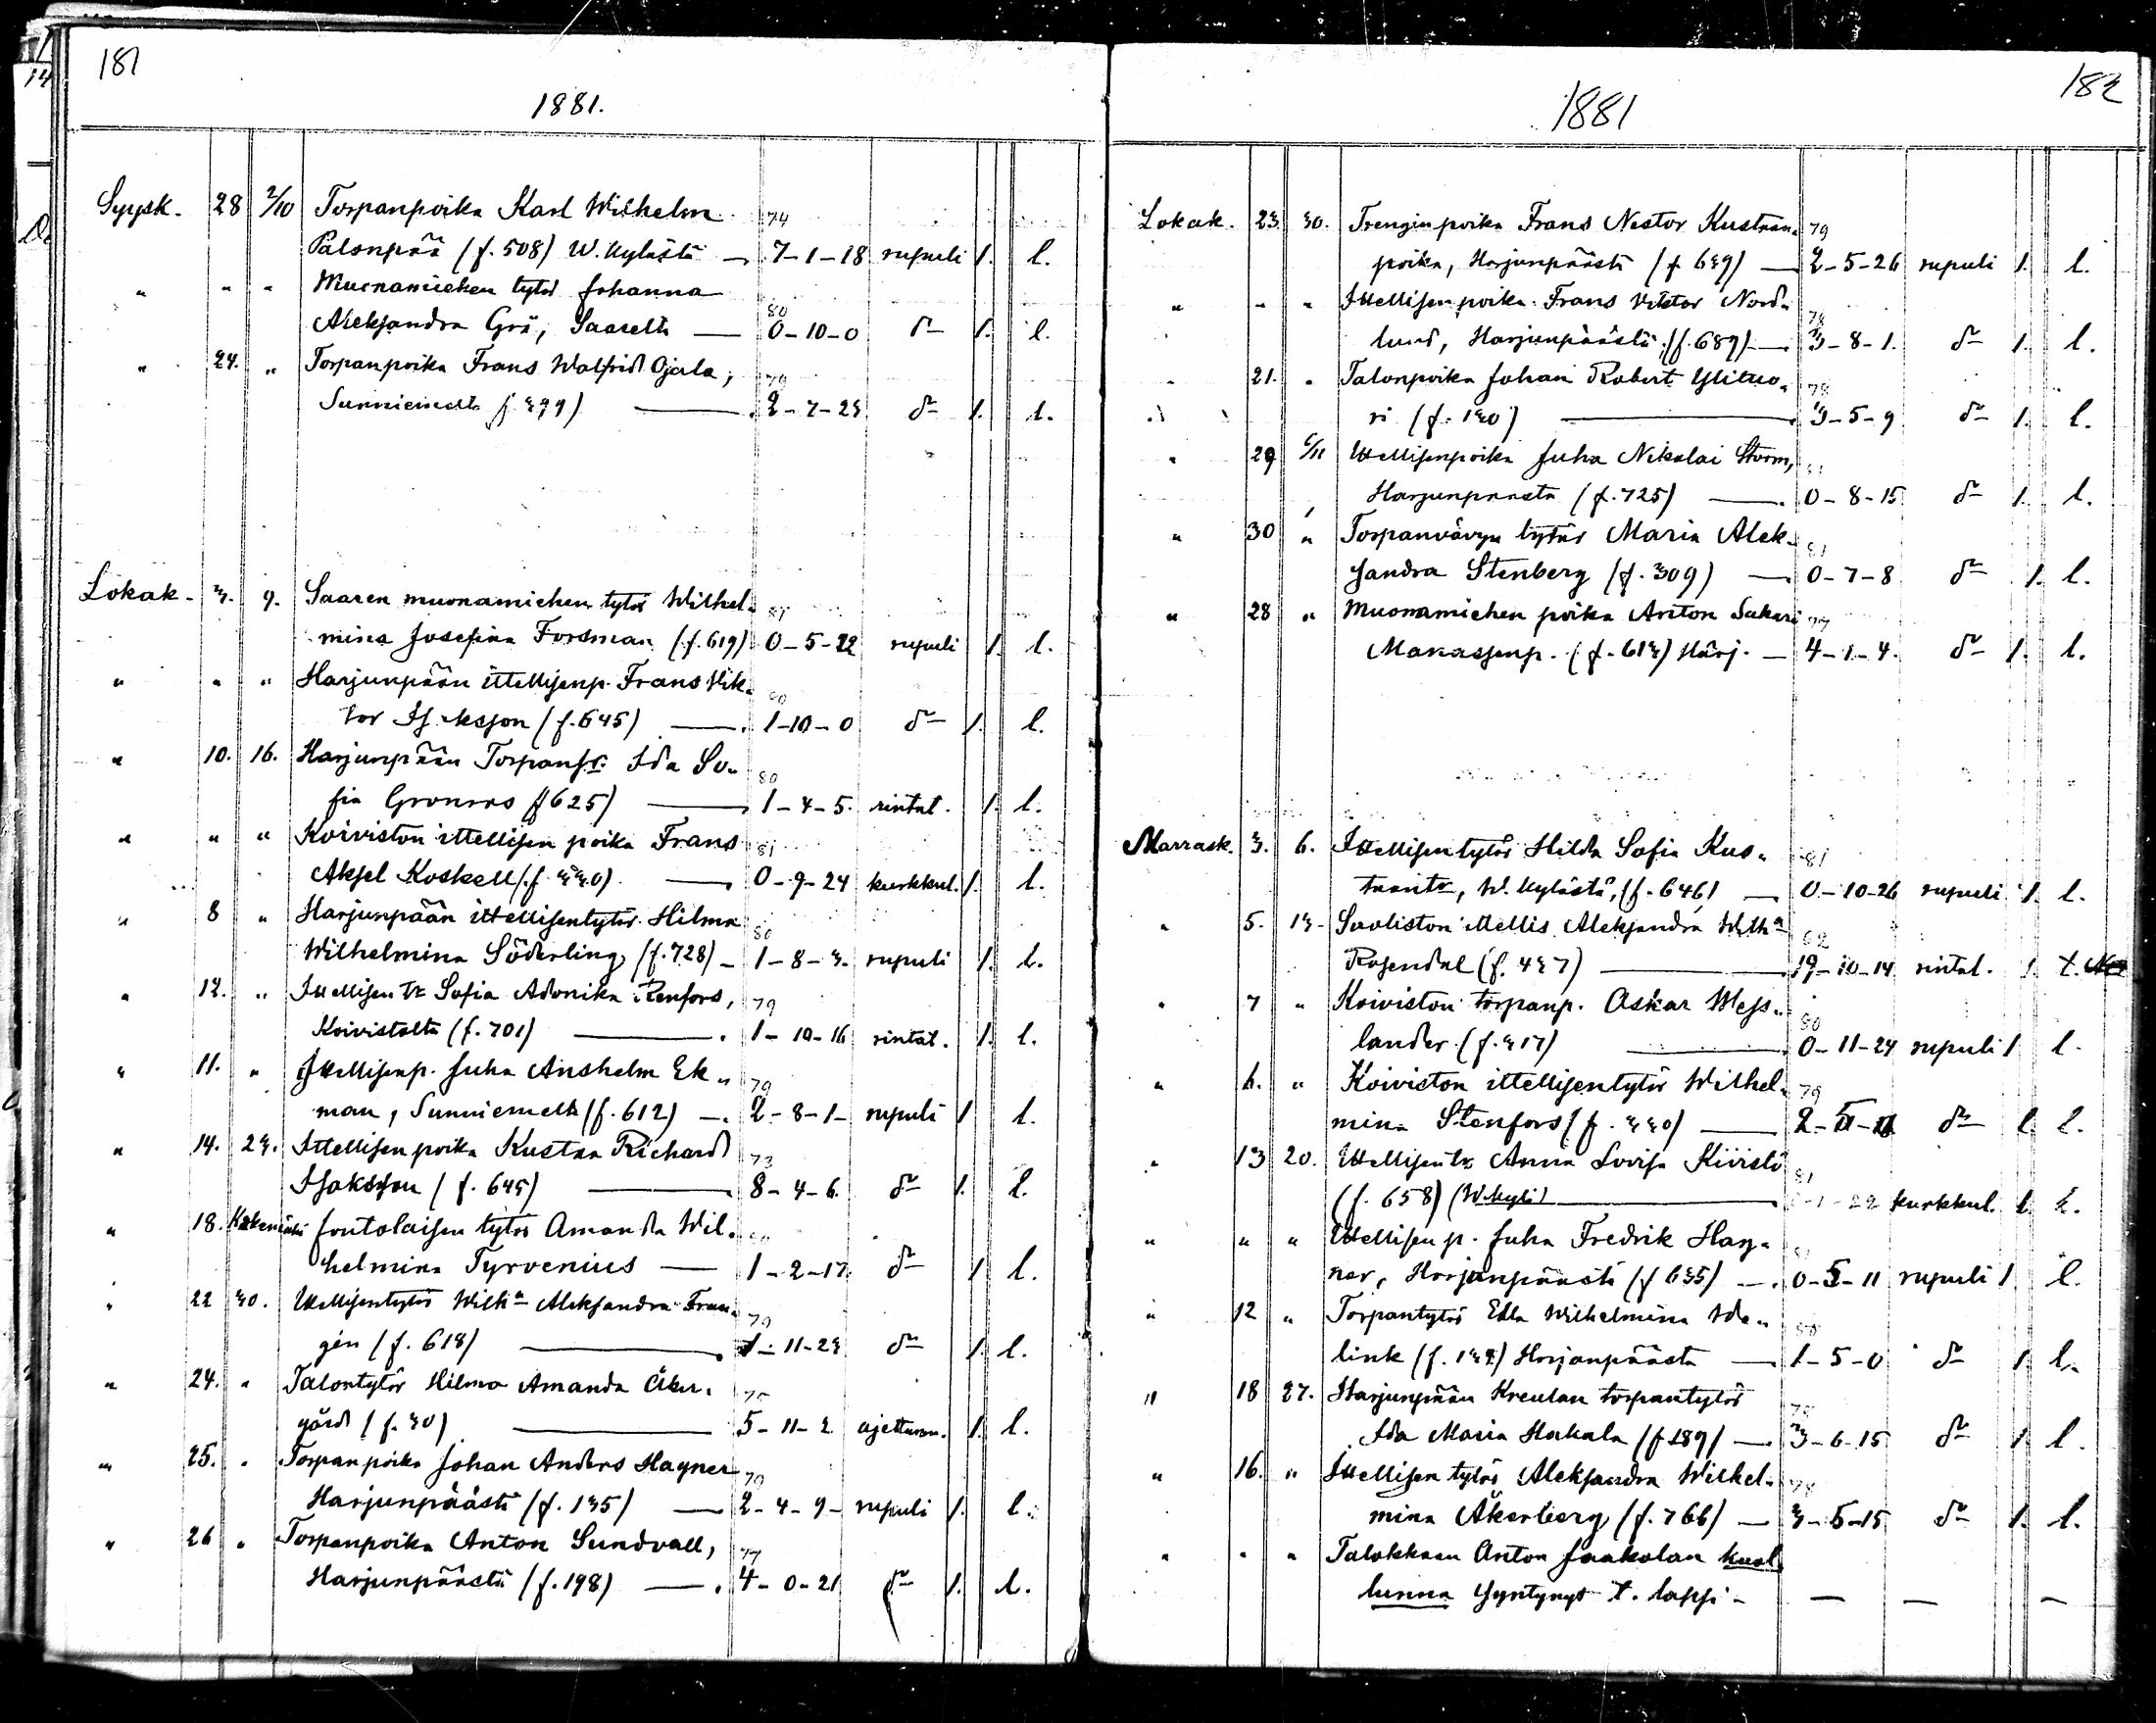 181
1881.
Syysk. 28 2/10 Torpanpoika Karl Wilhelm 74
Palonpää (f. 508) W. Kylästä — 7-1-18 rupuli 1. l.
" " " Muonamiehen tytö Johanna 80
Aleksandra Grä, Saarelta — 0-10-0 do 1. l.
" 24. " Torpanpoika Frans Walfrid Ojala, 79
Sunniemeltä — 2-7-23 do 1. l.
Lokak. 3. 9. Saaren muonamiehen tytö Wilhel- 81
mina Josefina Forsman (f. 619) 0-5-22 rupuli 1. l.
" " " Harjunpään ittellisenp. Frans Vik- 80
tor Isaksson (f. 645) — 1-10-0 do 1. l.
" 10. 16. Harjunpään Torpantr. Ida So- 80
fia Gronroos (f 625) — 1-4-5. rintat. 1. l.
" " " Koiviston ittellisen poika Frans 81
Aksel Koskell (f. 330) — 0-9-24 kurkkut. 1. l.
" 8 " Harjunpään ittellisentytö Hilma 80
Wilhelmina Söderling, (f. 728) — 1-8-3. rupuli 1. l.
" 12. " Ittellisen tr Sofia Adonika Renfors, 79
Koivistolta (f. 701) — 1-10-16 rintat. 1. l.
" 11. " Ittellisenp. Juha Anshelm Ek- 79
man, Sunniemeltä (f. 612) — 2-8-1- rupuli 1 l.
" 14. 23. Ittellisen poika Kustaa Richard 73
Isaksson (f. 645) — 8-4-6. do 1. l.
" 18. Kokemäki joutolaisen tytö Amanda Wil- 80
helmina Tyrvenius — 1-2-17. do 1 l.
" 22 30. Ittellisentytö Wilha Aleksandra Fran- 79
gén (f. 618) — 1-11-23 do 1. l.
" 24. " Talontytö Hilma Amanda Åker- 75
gård (f. 30) — 5-11-2 ajettum. 1. l.
" 25. " Torpanpoika Johan Anders Hayner 79
Harjunpäästä (f. 135) — 2-4-9- rupuli 1. l.
" 26 " Torpanpoika Anton Sundvall, 77
Harjunpäästä (f. 198) — 4-0-21 do 1. l.
182
1881
Lokak. 23. 30. Trengin poika Frans Nestor Kustaan- 79
poika, Harjunpäästä (f 639) — 2-5-26 rupuli 1. l.
" " " Ittellisen poika Frans Viktor Nord- 78
lund, Harjunpäästä (f. 689) — 3-8-1. do 1. l.
" 21. " Talonpoika Johan Robert Ylituo- 78
ri (f. 130) — 3-5-9 do 1. l.
" 29 6/11 Ittellisenpoika Juha Nikolai Storm, 81
Harjunpäästä (f. 725) — 0-8-15 do 1. l.
" 30 " Torpanvävyn tytär Maria Alek- 81
sandra Stenberg (f. 309) — 0-7-8 do 1. l.
" 28 " Muonamiehen poika Anton Sakari 77
Manassenp. (f. 613) Harj. — 4-1-4. do 1. l.
Marrask. 3. 6. Ittellisentytö Hilda Sofia Kus- 81
taantr, W. Kylästä, (f. 646) — 0-10-26 rupuli 1. l.
" 5. 13. Savliston ittellis Aleksandra Wilha 62
Rosendal (f. 437) — 19-10-14 rintat. 1. t.
" 7 " Koiviston torpanp. Oskar Wess- 80
lander (f. 317) — 0-11-24 rupuli 1 l.
" 6. " Koiviston ittellisentytö Wilhel- 79
mina Stenfors (f. 330) — do 1. l.
" 13 20. Ittellisentr. Anna Lovisa Kiivistö 81
(f. 658) (W kylä) — kurkkut. 1. l.
" " " Ittellisen p. Juha Fredrik Hay- 81
ner, Harjunpäästä (f 635) — 0-5-11 rupuli 1 l.
" 12 " Torpantytö Edla Wilhelmina Ide- 80
link (f. 132) Harjanpäästä — 1-5-0 do 1 l.
" 18 27. Harjunpään Kreulan torpantytö 78
Ida Maria Hakala (f 189) — 3-6-15 do 1 l.
" 16. " Ittellisen tytö Aleksandra Wilhel- 78
mina Åkerberg, (f. 766) — 3-5-15 do 1. l.
" " " Talokkaan Anton Jaakolan kuol-
lunna syntynyt t. lapsi — — — —